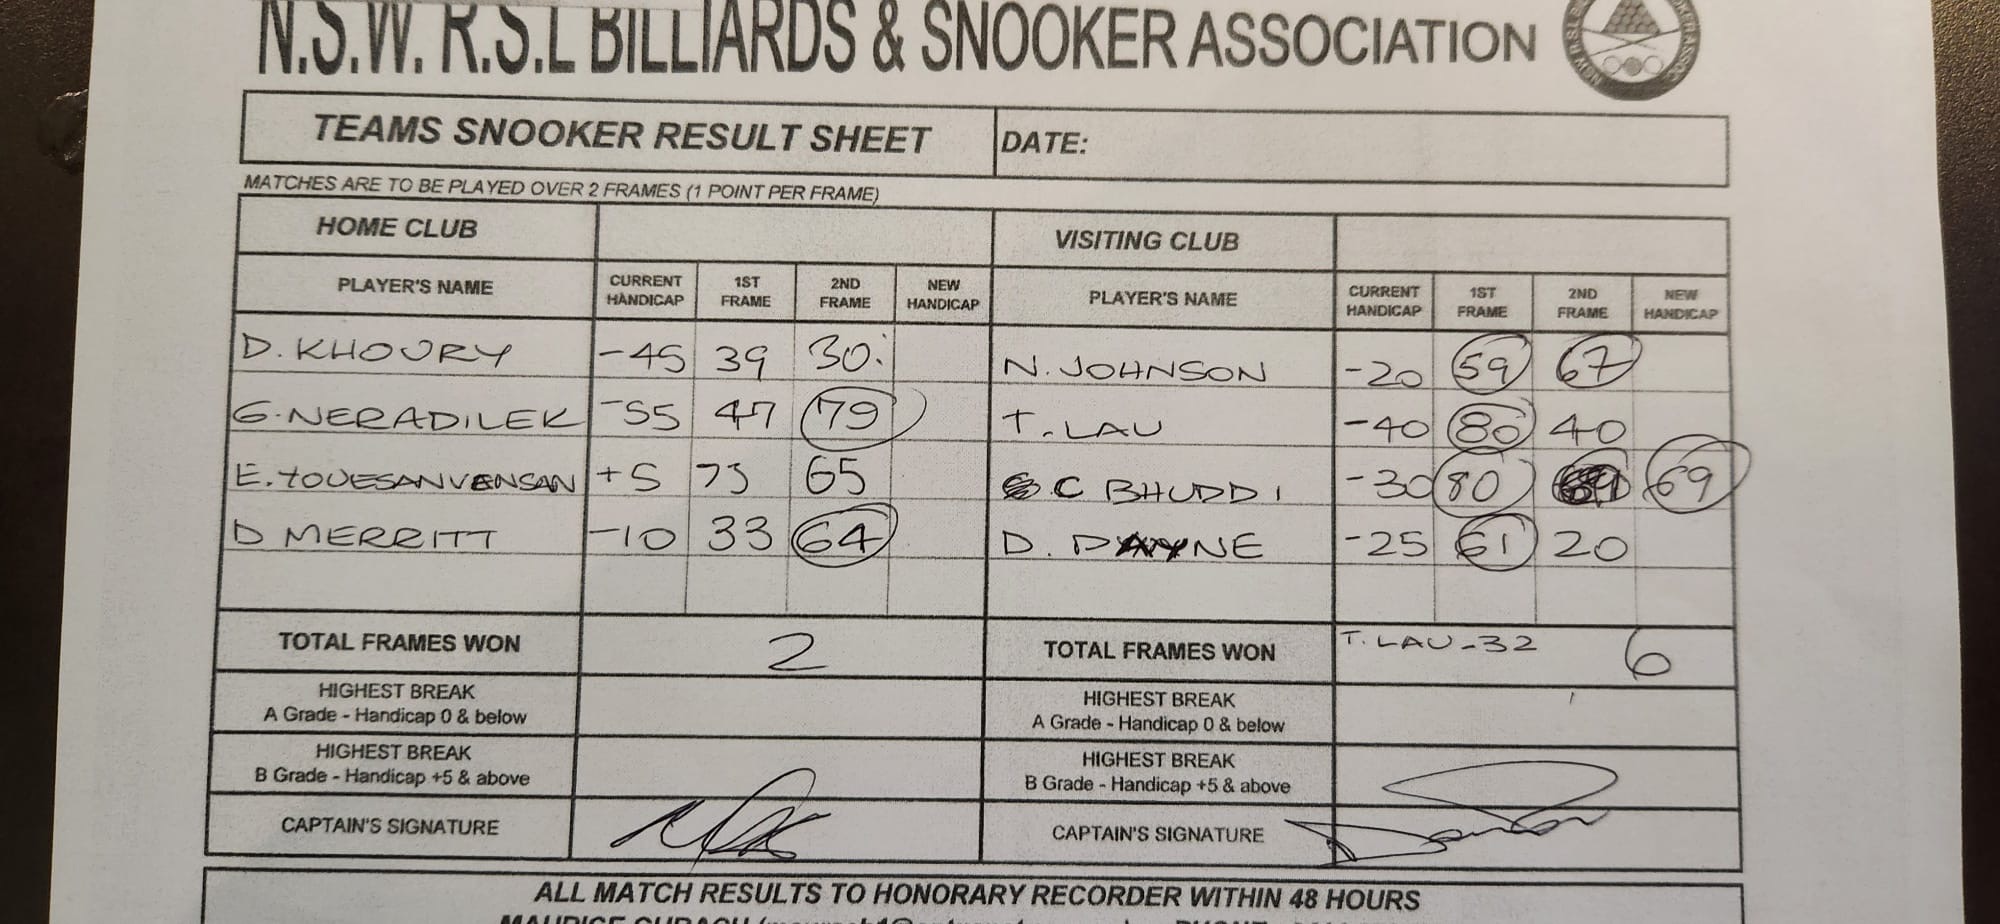 N.S.W. R.S.L BILLIARDS & SNOOKER ASSOCIATION
TEAMS SNOOKER RESULT SHEET DATE:
MATCHES ARE TO BE PLAYED OVER 2 FRAMES (1 POINT PER FRAME)
HOME CLUB VISITING CLUB
PLAYER'S NAME CURRENT HANDICAP 1ST FRAME 2ND FRAME NEW HANDICAP PLAYER'S NAME CURRENT HANDICAP 1ST FRAME 2ND FRAME NEW HANDICAP
D. KHOURY -45 39 30 N. JOHNSON -20 59 67
G. NERADILEK -55 47 79 T. LAU -40 80 40
E. YOUESANVENSAN +5 73 65 C BHUDDI -30 80 69
D MERRITT -10 33 64 D. -25 61 20
TOTAL FRAMES WON 2 TOTAL FRAMES WON T. LAU-32 6
HIGHEST BREAK HIGHEST BREAK
A Grade - Handicap 0 & below A Grade - Handicap 0 & below
HIGHEST BREAK HIGHEST BREAK
B Grade - Handicap +5 & above B Grade - Handicap +5 & above
CAPTAIN'S SIGNATURE CAPTAIN'S SIGNATURE
ALL MATCH RESULTS TO HONORARY RECORDER WITHIN 48 HOURS